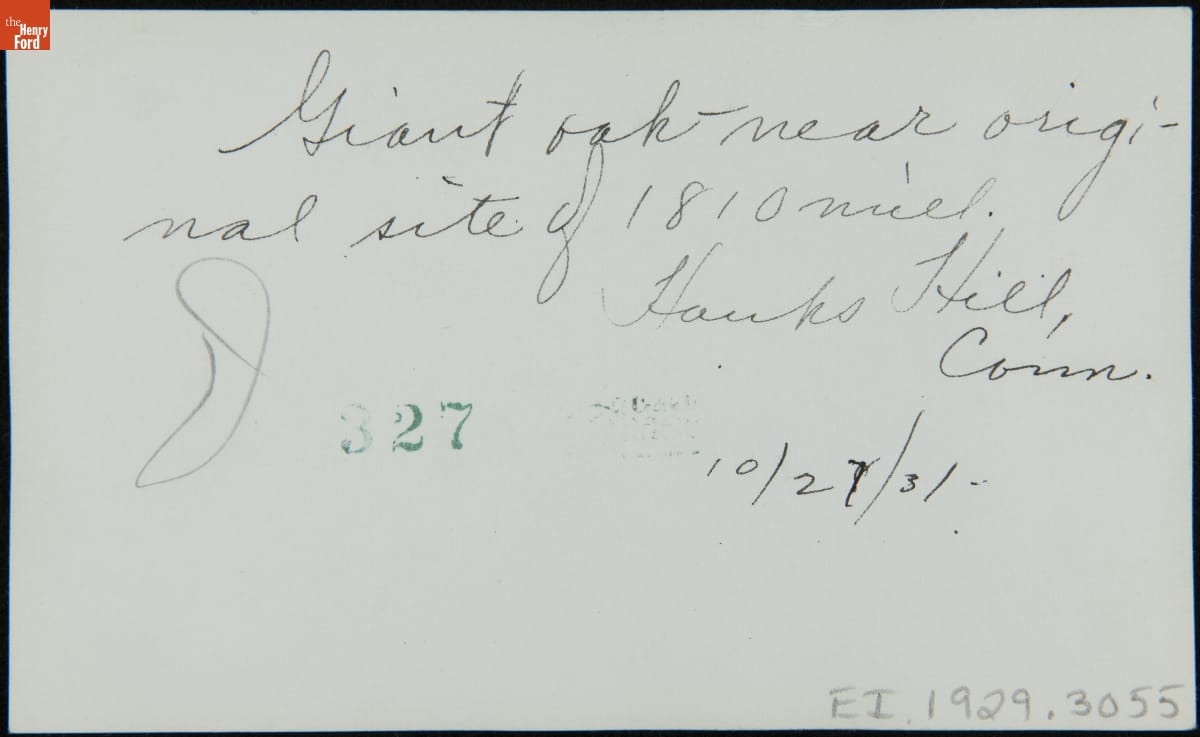 the
Henry
Ford
Giant oak - near origi-
nal site of 1810 mill.
Hanks Hill,
Conn.
327
10/27/31-
EI.1929.3055